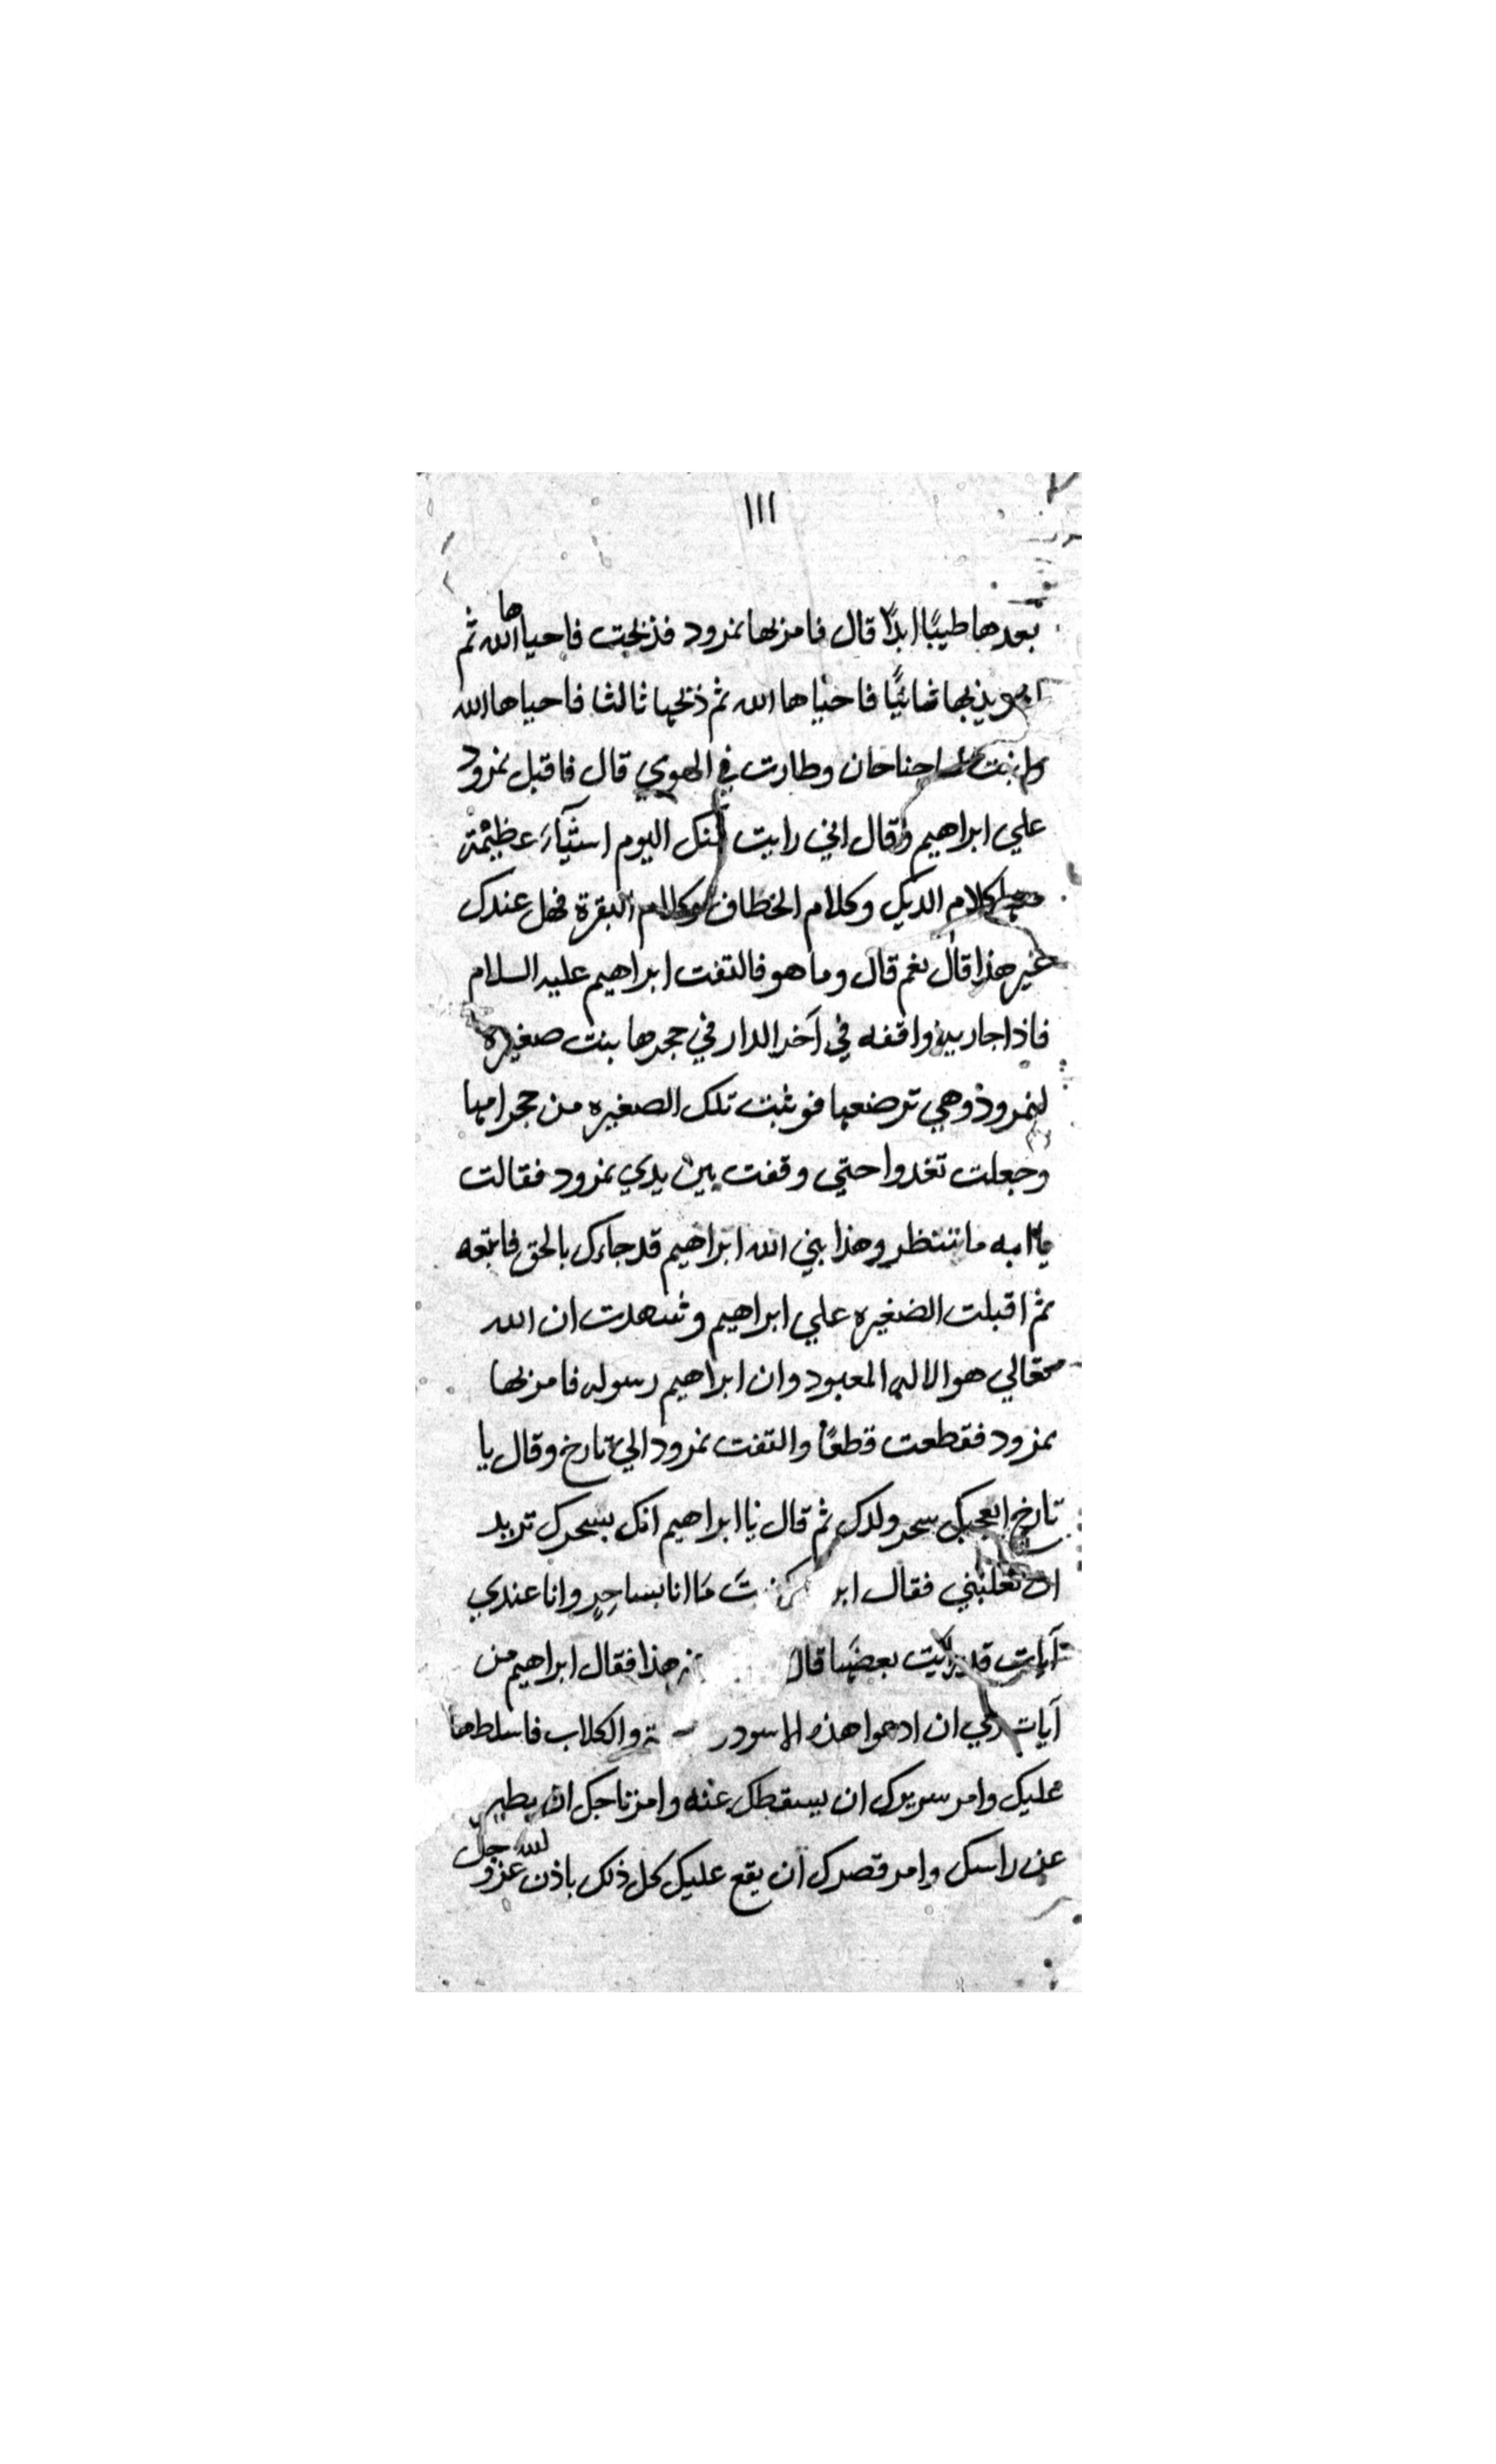 ١١١
بعدها طيبًا ابدًا قال فامر بها نمرود فذبحت فاحياها الله ثم
بذبحها ثانيًا فاحياها الله ثم ذبحها ثالثا فاحياها الله
جناحان وطارت في الهوي قال فاقبل نمرود
علي ابراهيم وقال اني رايت منك اليوم اشيآء عظيمة
كلام الديك وكلام الخطاف وكلام البقرة فهل عندك
غير هذا قال نعم قال وما هو فالتفت ابراهيم عليه السلام
فاذا جارية واقفه في آخر الدار في حجرها بنت صغيره
لنمرود وهي ترضعها فوثبت تلك الصغيره من حجر امها
وجعلت تغدوا حتي وقفت بين يدي نمرود فقالت
يا ابه ما تنتظر وهذا نبي الله ابراهيم قد جاءك بالحق فاتبعه
ثم اقبلت الصغيره علي ابراهيم وشهدت ان الله
تعالي هو الاله المعبود وان ابراهيم رسوله فامر بها
نمرود فقطعت قطعًا والتفت نمرود الي تارخ وقال يا
تارخ ايعجبك سحر ولدك ثم قال يا ابراهيم انك بسحرك تريد
ان تغلبني فقال ما انا بساحرٍ وانا عندي
آيات قد رايت بعضها قال هذا فقال ابراهيم من
آيات ربي ان ادعوا هذه الاسود والكلاب فاسلطها
عليك وامر سريرك ان يسقطك عنه وامر تاجك ان يطير
عن راسك وامر قصرك ان يقع عليك كل ذلك باذن الله عز وجل